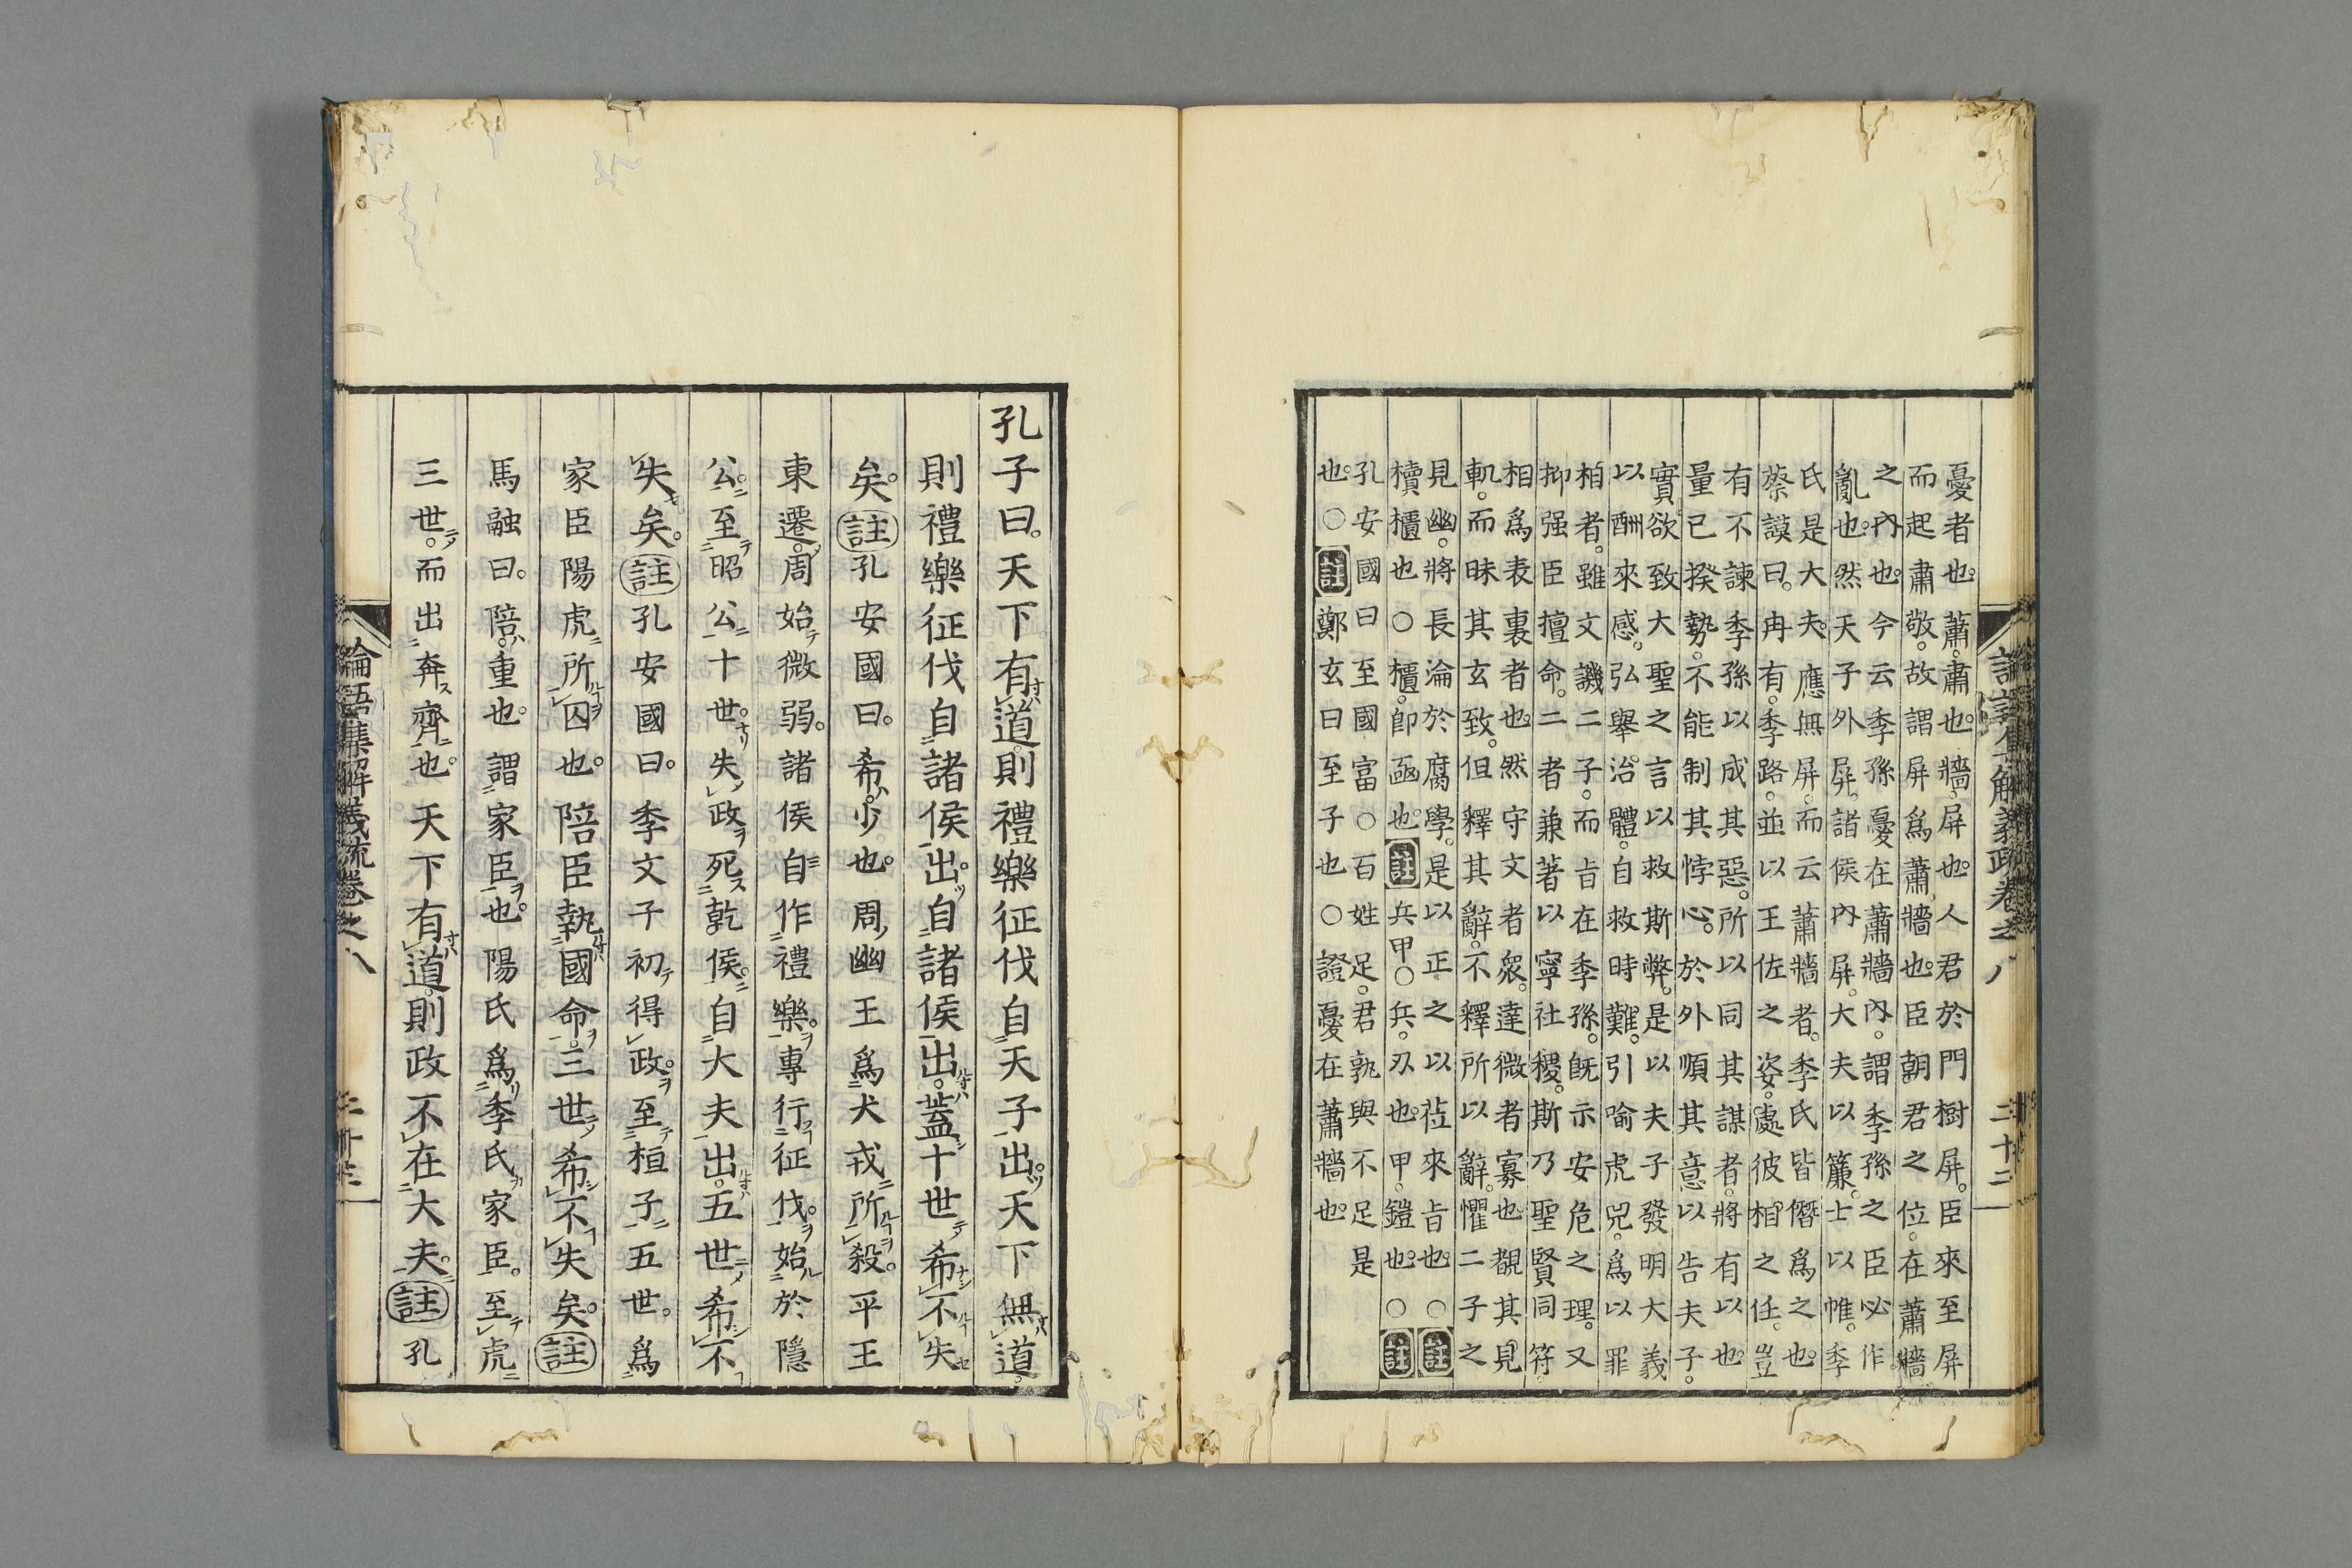 憂者也。蕭。肅也。牆。屏也。人君於門樹屏。臣來至屏
而起肅敬。故謂屏爲蕭牆也。臣朝君之位。在蕭牆
之內也。今云季孫憂在蕭牆內。謂季孫之臣必作
亂也。然天子外屏。諸侯內屏。大夫以簾。士以帷。季
氏是大夫。應無屏。而云蕭牆者。季氏皆僭爲之也。
蔡謨曰。冉有。季路。並以王佐之姿。處彼相之任。豈
有不諫季孫以成其惡。所以同其謀者。將有以也。
量已揆勢。不能制其悖心。於外順其意以告夫子。
實欲致大聖之言以救斯弊。是以夫子發明大義
以酬來感。弘舉治體。自救時難。引喻虎兕。爲以罪
相者。雖文譏二子。而旨在季孫。旣示安危之理。又
抑强臣擅命。二者兼著以寧社稷。斯乃聖賢同符。
相爲表裏者也。然守文者衆。達微者寡也。覩其見
軌。而昧其玄致。但釋其辭。不釋所以辭。懼二子之
見幽。將長淪於腐學。是以正之以莅來旨也。○註
櫝櫃也○櫃。卽凾也。註兵甲○兵。刃也。甲。鎧也。○註
孔安國曰至國富○百姓足。君孰與不足是
也。○註鄭玄曰至子也○證憂在蕭牆也。
二十二
孔子曰。天下有道。則禮樂征伐自天子出。天下無道。
則禮樂征伐自諸侯出。自諸侯出。蓋十世希不失
矣。註孔安國曰。希。少也。周幽王爲犬戎所殺。平王
東遷。周始微弱。諸侯自作禮樂。專行征伐。始於隱
公。至昭公十世。失政死乾侯。自大夫出。五世希不
失矣。註孔安國曰。季文子初得政。至桓子五世。爲
家臣陽虎所囚也。陪臣執國命。三世希不失矣。註
馬融曰。陪。重也。謂家臣也。陽氏爲季氏家臣。至虎
三世。而出奔齊也。天下有道。則政不在大夫。註孔
論語集解義疏卷之八